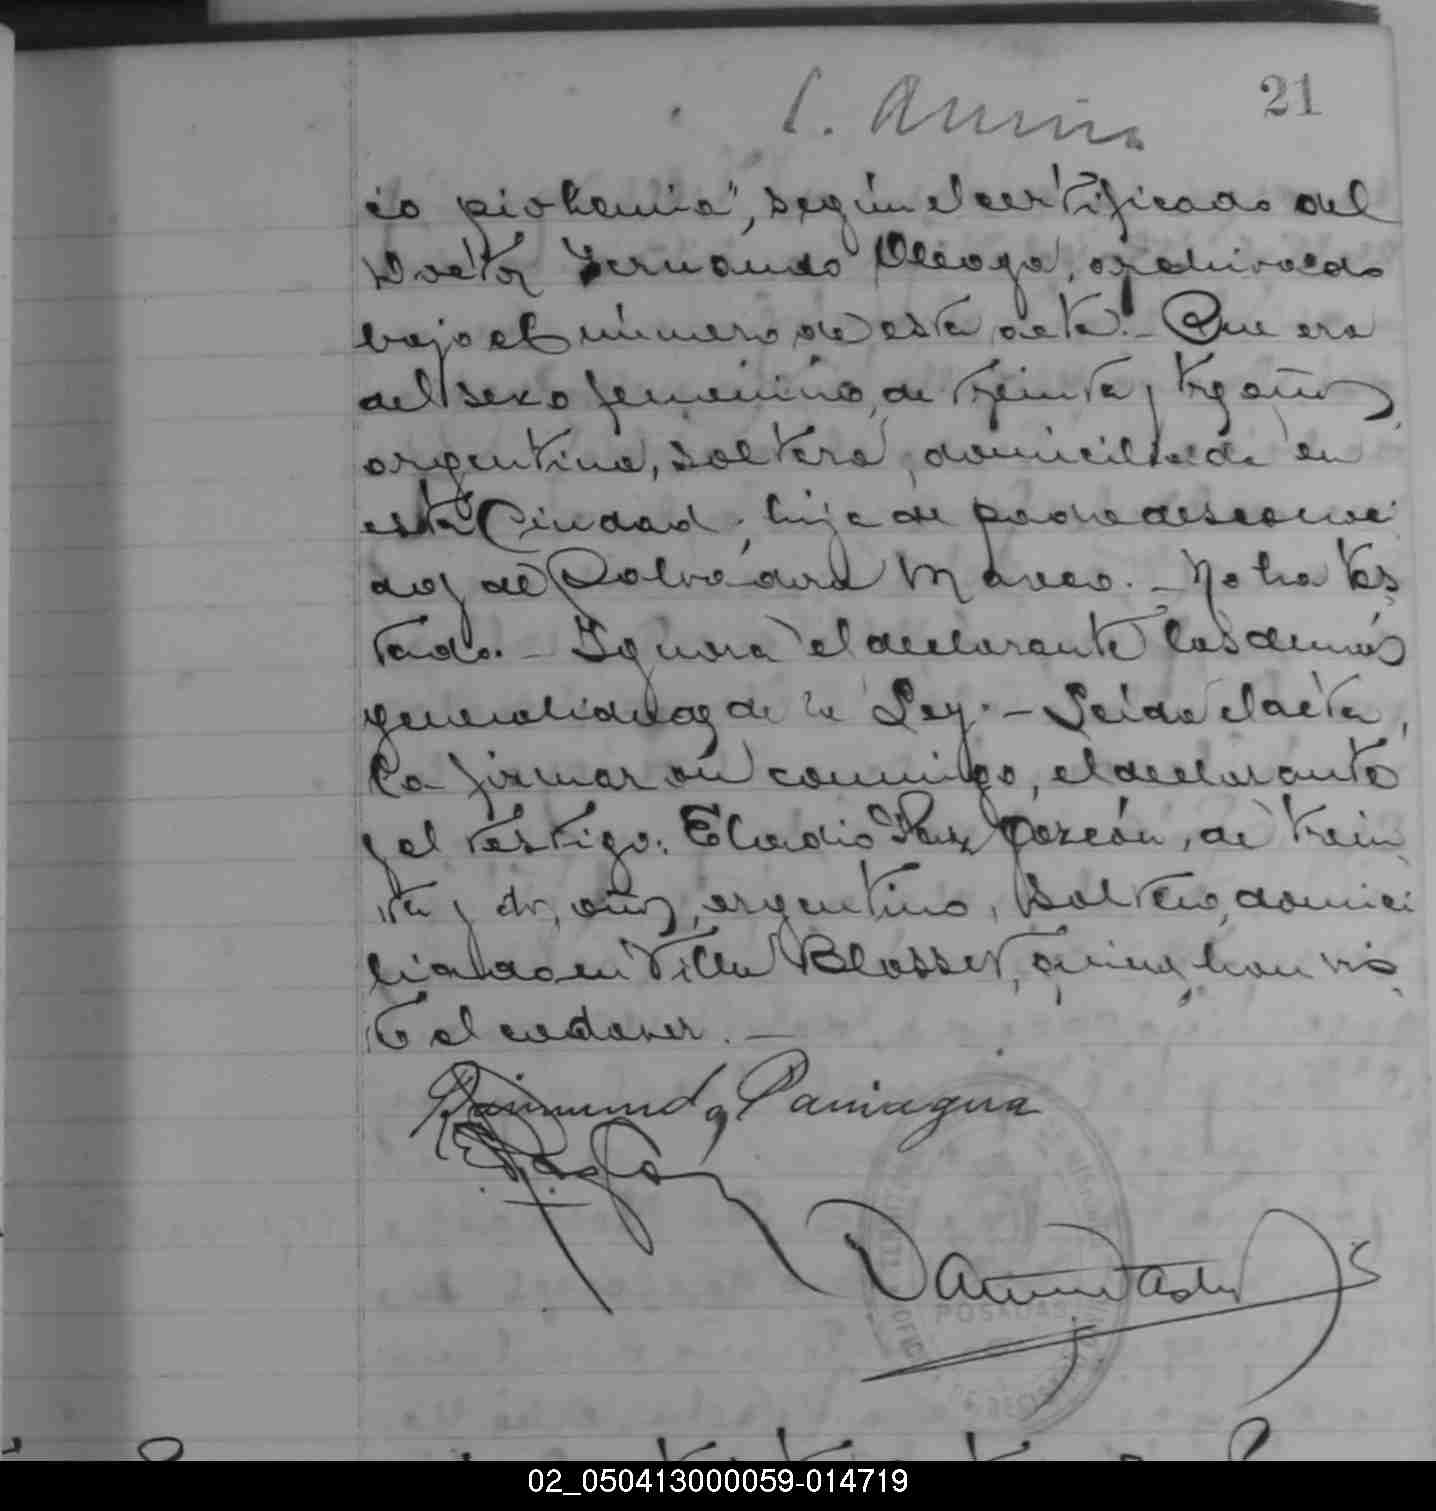 21
cio piohemia", según el certificado del
Doctor Fernando archivado
bajo el número de esta acta.- Que era
del sexo femenino, de treinta y tres años,
argentina, soltera, domiciliada en
esta Ciudad, hija de padre desconoci
do y de Salvadora Mareco.- No ha tes
tado.- Ignora el declarante las demás
generalidades de la Ley.- Leída el acta,
la firmaron conmigo, el declarante
y el testigo: Eladio Garzón, de trein
ta y dos años, argentino, soltero, domici
liado en Villa Blosset, quienes han vis
to el cadáver.-
Raimundo Paniagua
POSADAS
02_050413000059-014719